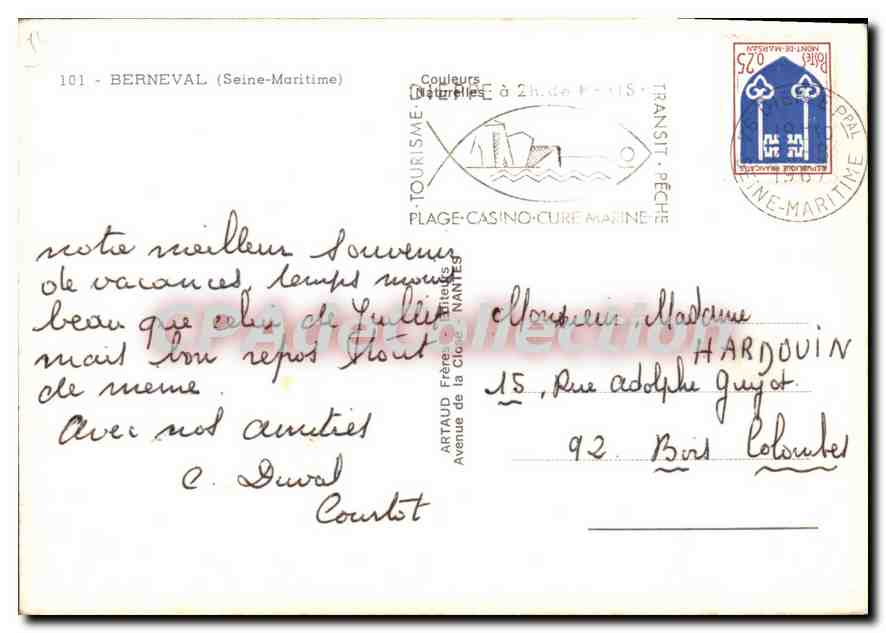 101 - BERNEVAL (Seine-Maritime)
Couleurs
Naturelles
DIEPPE à 2h. de PARIS
TOURISME
TRANSIT · PÊCHE
PLAGE · CASINO · CURE MARINE
POSTES
0,25
MONT-DE-MARSAN
REPUBLIQUE FRANÇAISE
76 DIEPPE PPAL
SEINE-MARITIME
notre meilleur souvenir
de vacances, temps moins
beau que celui de Juillet
mais bon repos tout
de même.
Avec nos amitiés
C. Duval
Courtot
ARTAUD Frères - Editeurs
Avenue de la Close - NANTES
Monsieur, Madame
HARDOUIN
15, Rue Adolphe Guyot
92 Bois Colombes
CPAdeCollection